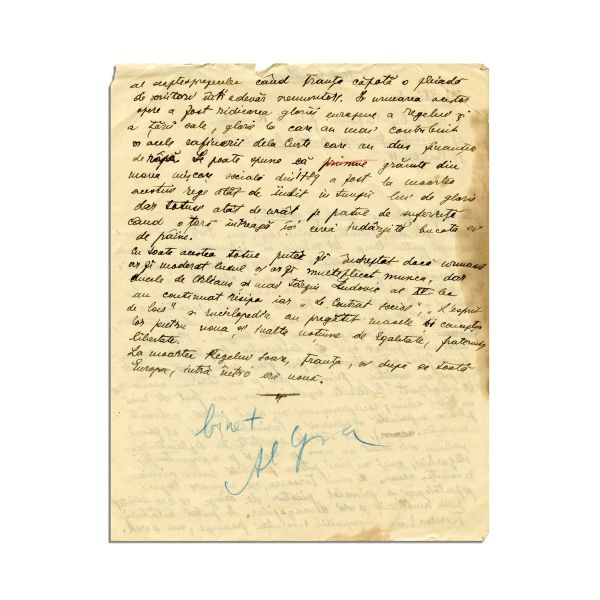 al septesprezecelea când Franța capătă o pleiadă
de scriitori într'adevăr nemuritori. Cu urmarea acestor
opere a fost ridicarea gloriei europene a regelui și
a țării sale, glorie la care au mai contribuit
și acele rafinerii dela Curte care au dus finanțele
de râpă. Se poate spune că grăunte din
marea mișcare socială din 1789 a fost la moartea
acestui rege atât de iubit în timpii lui de glorie
dar totuși atât de urât pe patul de suferință
când o țară întreagă îi cerea îndârjită bucata ei
de pâine.
Cu toate acestea totul putea fi îndreptat dacă urmașii
ar fi moderat luxul și ar fi multiplicat munca, dar
ducele de Orléans și mai târziu Ludovic al XV lea
au continuat risipa iar „Le Contrat social", „L'esprit
de lois" și Enciclopedia au pregătit masele
lor pentru noua, și înalta noțiune de Egalitate, fraternitate
libertate.
La moartea Regelui Soare, Franța, și după ea toată
Europa, intră într'o eră nouă.
bine +